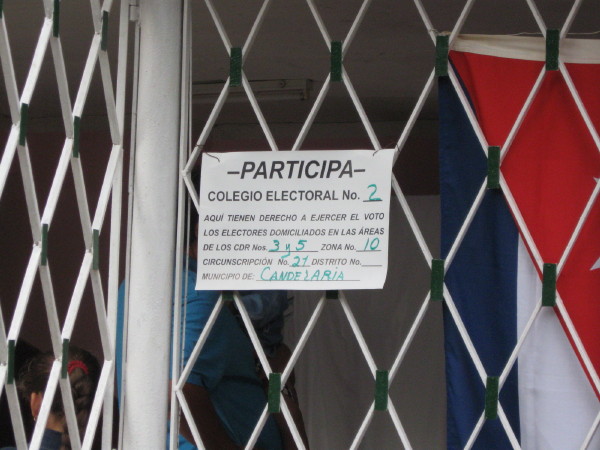 –PARTICIPA–
COLEGIO ELECTORAL No. 2
AQUÍ TIENEN DERECHO A EJERCER EL VOTO
LOS ELECTORES DOMICILIADOS EN LAS ÁREAS
DE LOS CDR Nos. 3 y 5 ZONA No. 10
CIRCUNSCRIPCIÓN No. 21 DISTRITO No.
MUNICIPIO DE: CANDELARIA